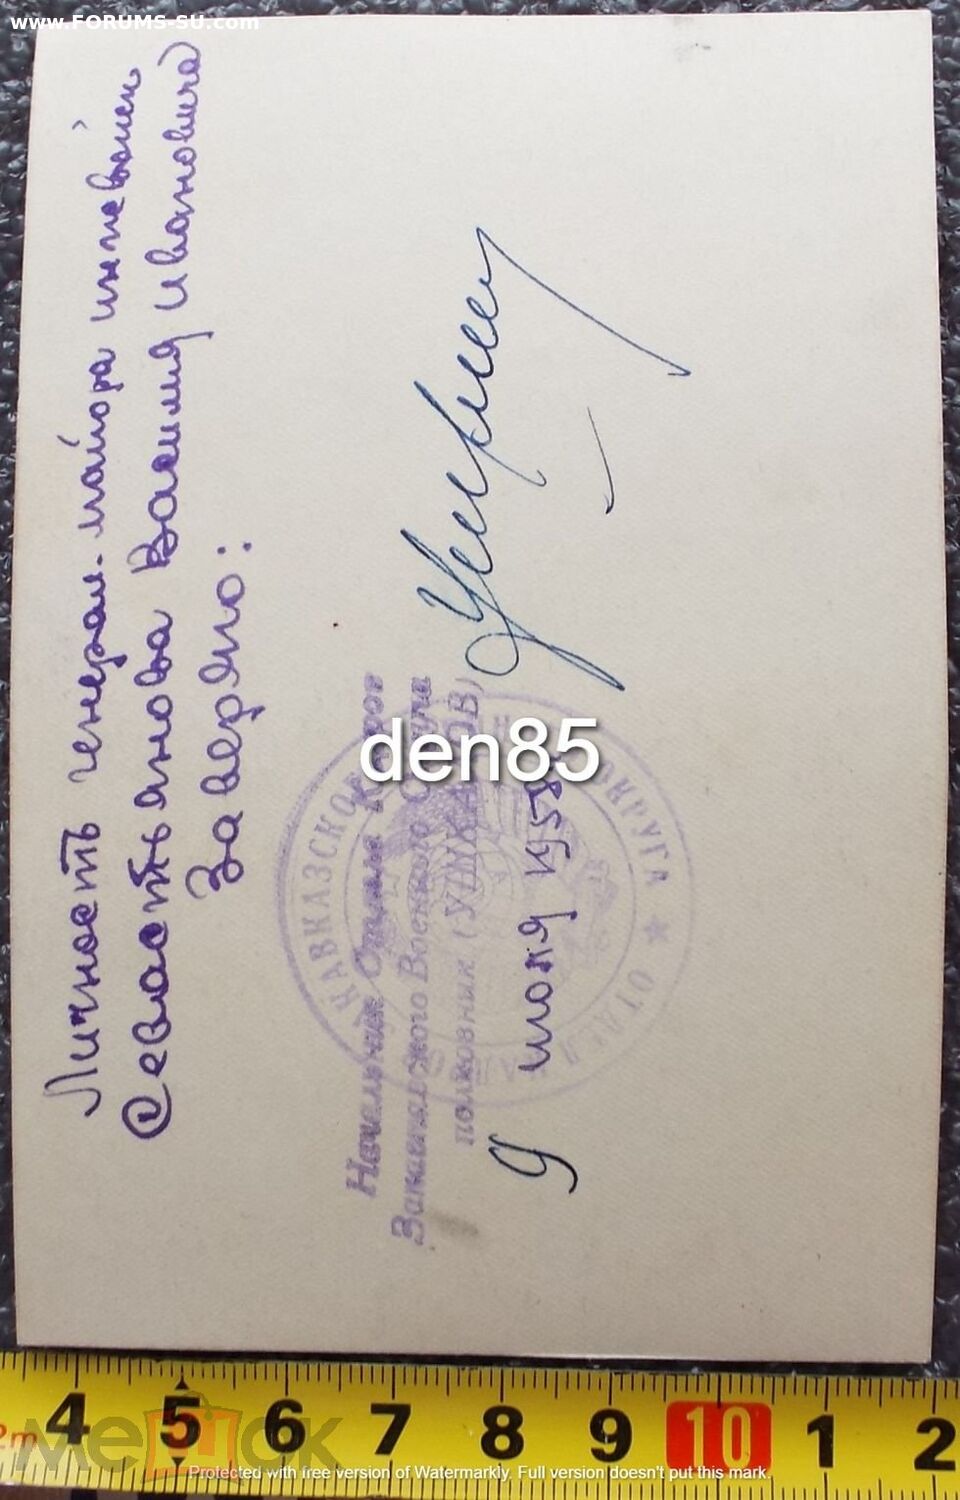 www.FORUMS-SU.com
Личность генерал-майора инж. войск
Севастьянова Василия Ивановича
Заверяю:
Начальник Отдела Кадров
Закавказского Военного Округа
полковник (УШКАЛОВ)
9 июля 195
КАВКАЗСКОГО ОКРУГА ★ ОТДЕЛ
den85
мешок
2m 4 5 6 7 8 9 10 1 2
Protected with free version of Watermarkly. Full version doesn't put this mark.